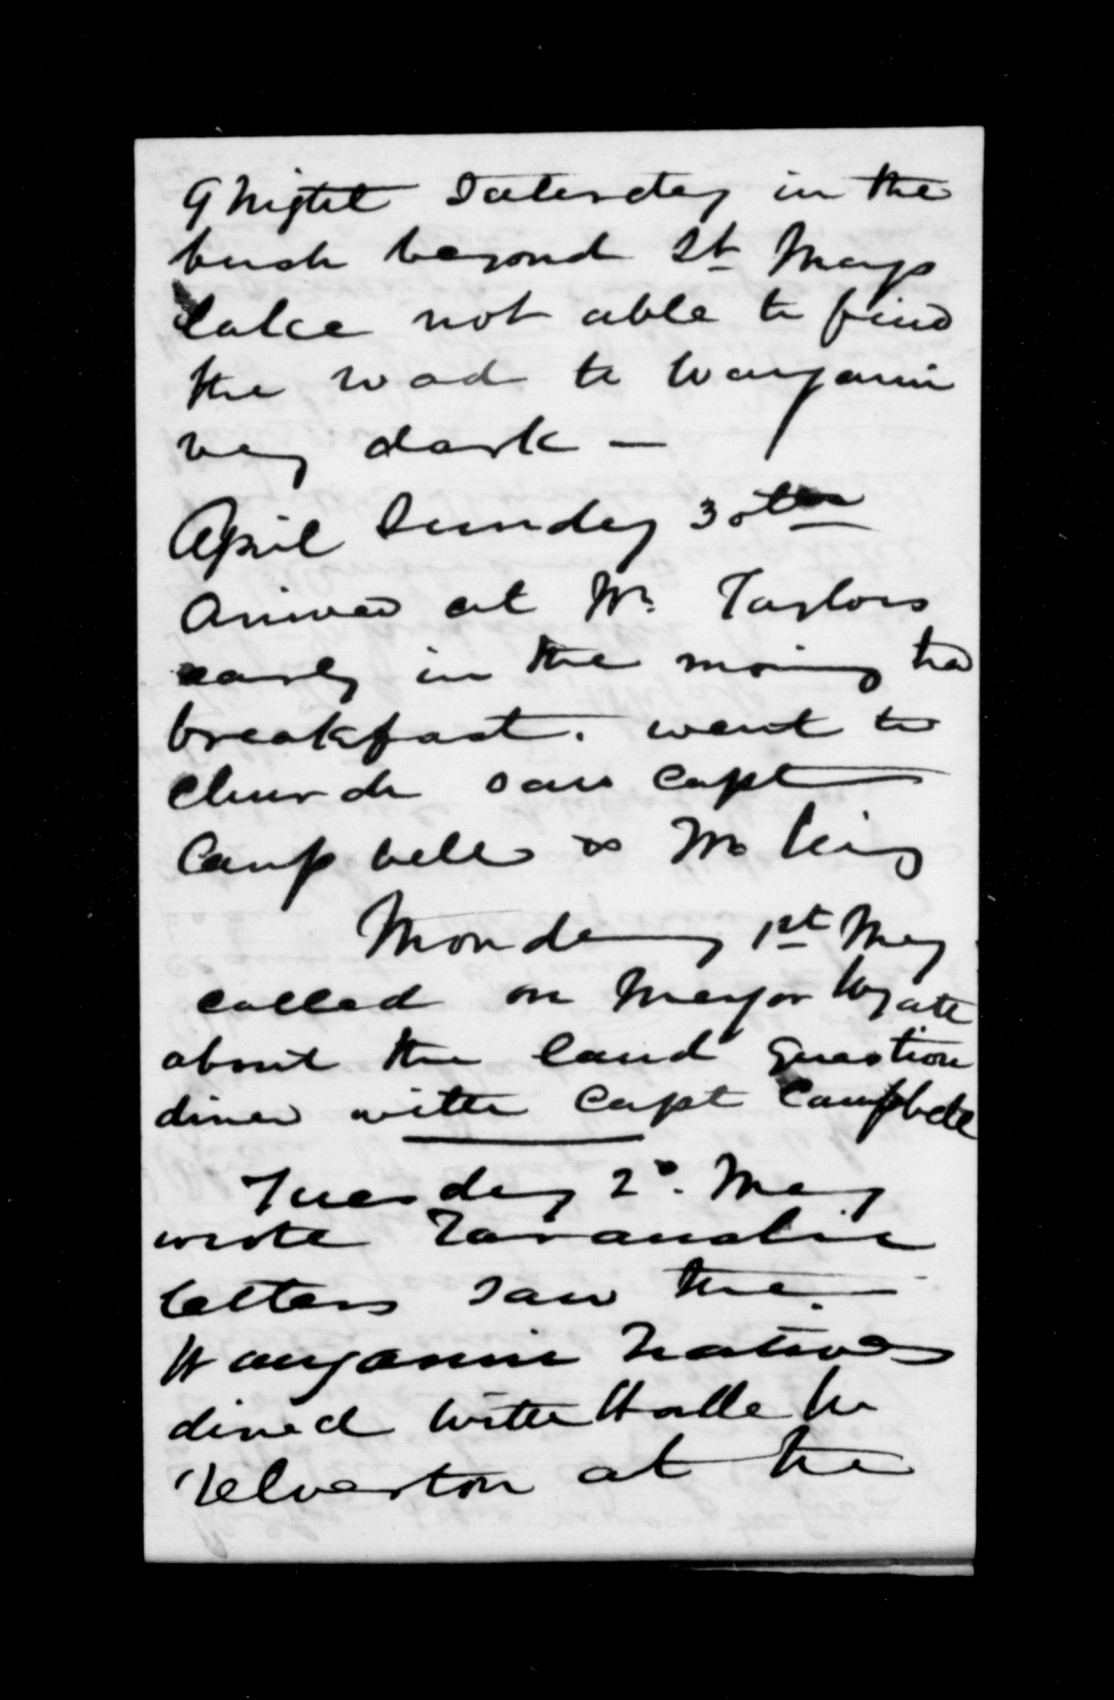 9 Night Saturday in the
bush beyond St Marys
lake not able to find
the road to Wanganui
very dark —
April Sunday 30th
Arrived at Mr. Taylors
early in the morning had
breakfast. went to
church saw Capt
Campbell & Mr King
Monday 1st May
called on Major Wyatt
about the land question
dined with Capt Campbell
Tuesday 2d. May
wrote Taranaki
letters saw the
Wanganui Natives
dined with
Yelverton at the